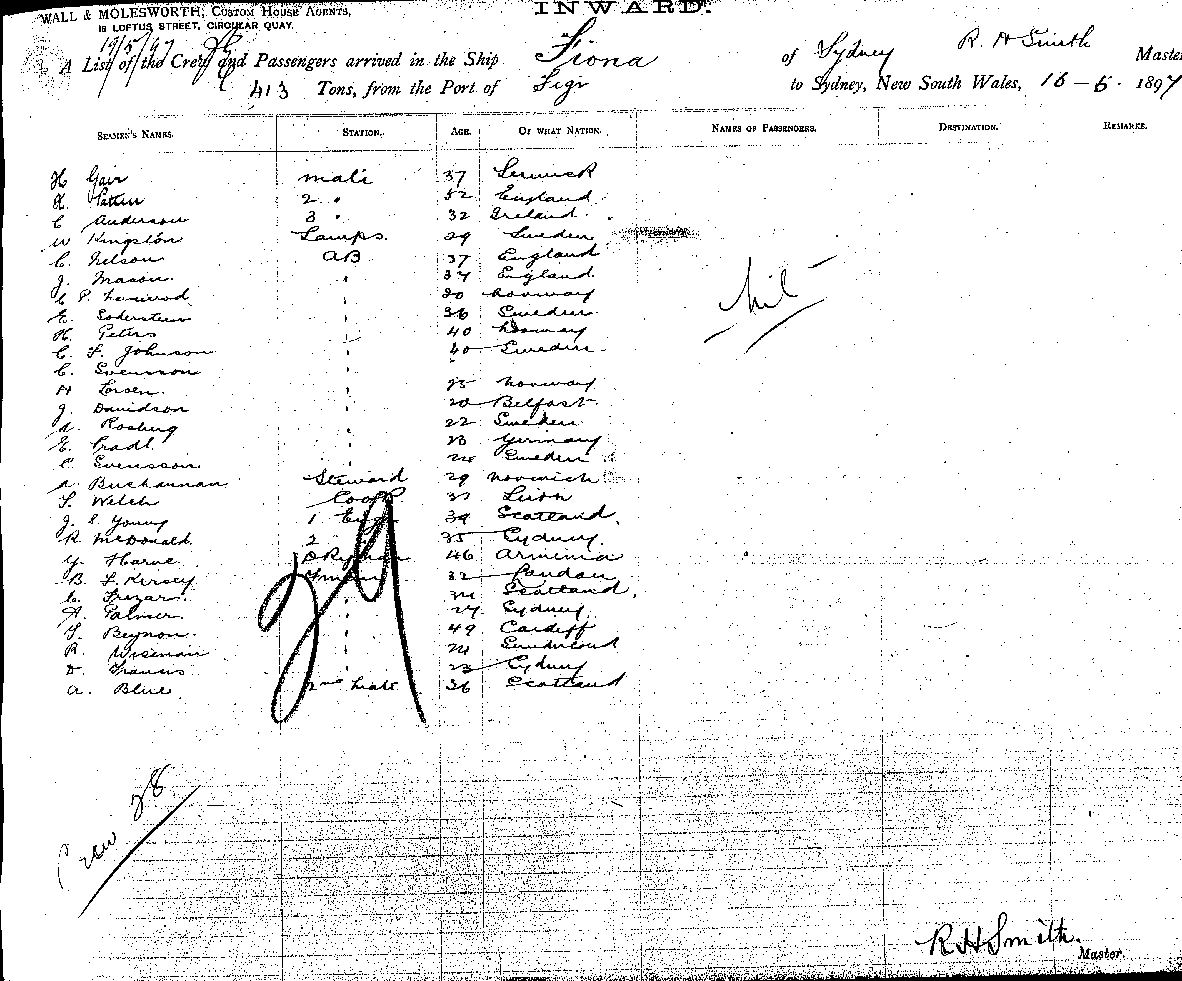 WALL & MOLESWORTH, CUSTOM HOUSE AGENTS,
18 LOFTUS STREET, CIRCULAR QUAY.
INWARD.
19/5/97
A List of the Crew and Passengers arrived in the Ship Fiona of Sydney R. H Smith Master
413 Tons, from the Port of to Sydney, New South Wales, 16-5-1897
SEAMEN'S NAMES. STATION. AGE. OF WHAT NATION. NAMES OF PASSENGERS. DESTINATION. REMARKS.
H Gair mate 37 Lerwick
2 " 52 England
C Anderson 3 " 32 Ireland
W Kingston Lamps. 29 Sweden
C. Nelson AB 37 England
J. Mason " 37 England
P. " 20 Norway
E. " 36 Sweden
H. Peters " 40 Norway
C. F. Johnson " 40 Sweden
C. Svensson "
H Larsen " 25 Norway
J. Davidson " 20 Belfast
A. Rosberg " 22 Sweden
E. " 23 Germany
C. Svensson " 24 Sweden
A. Buchannan Steward 29 Norwich
Welch Cook
J. S. Young 1 Eng 39 Scotland
R. McDonald 2 " 35 Sydney
Harne 46 Armenia
B. F. Kersey 32 London
Scotland
A. Palmer " 27 Sydney
Beynon " 49 Cardiff
R. Wiseman " 24 Sunderland
D. Francis " 23 Sydney
A. Blue 2nd mate 36 Scotland
nil
29
Crew 28.
R H Smith.
Master.